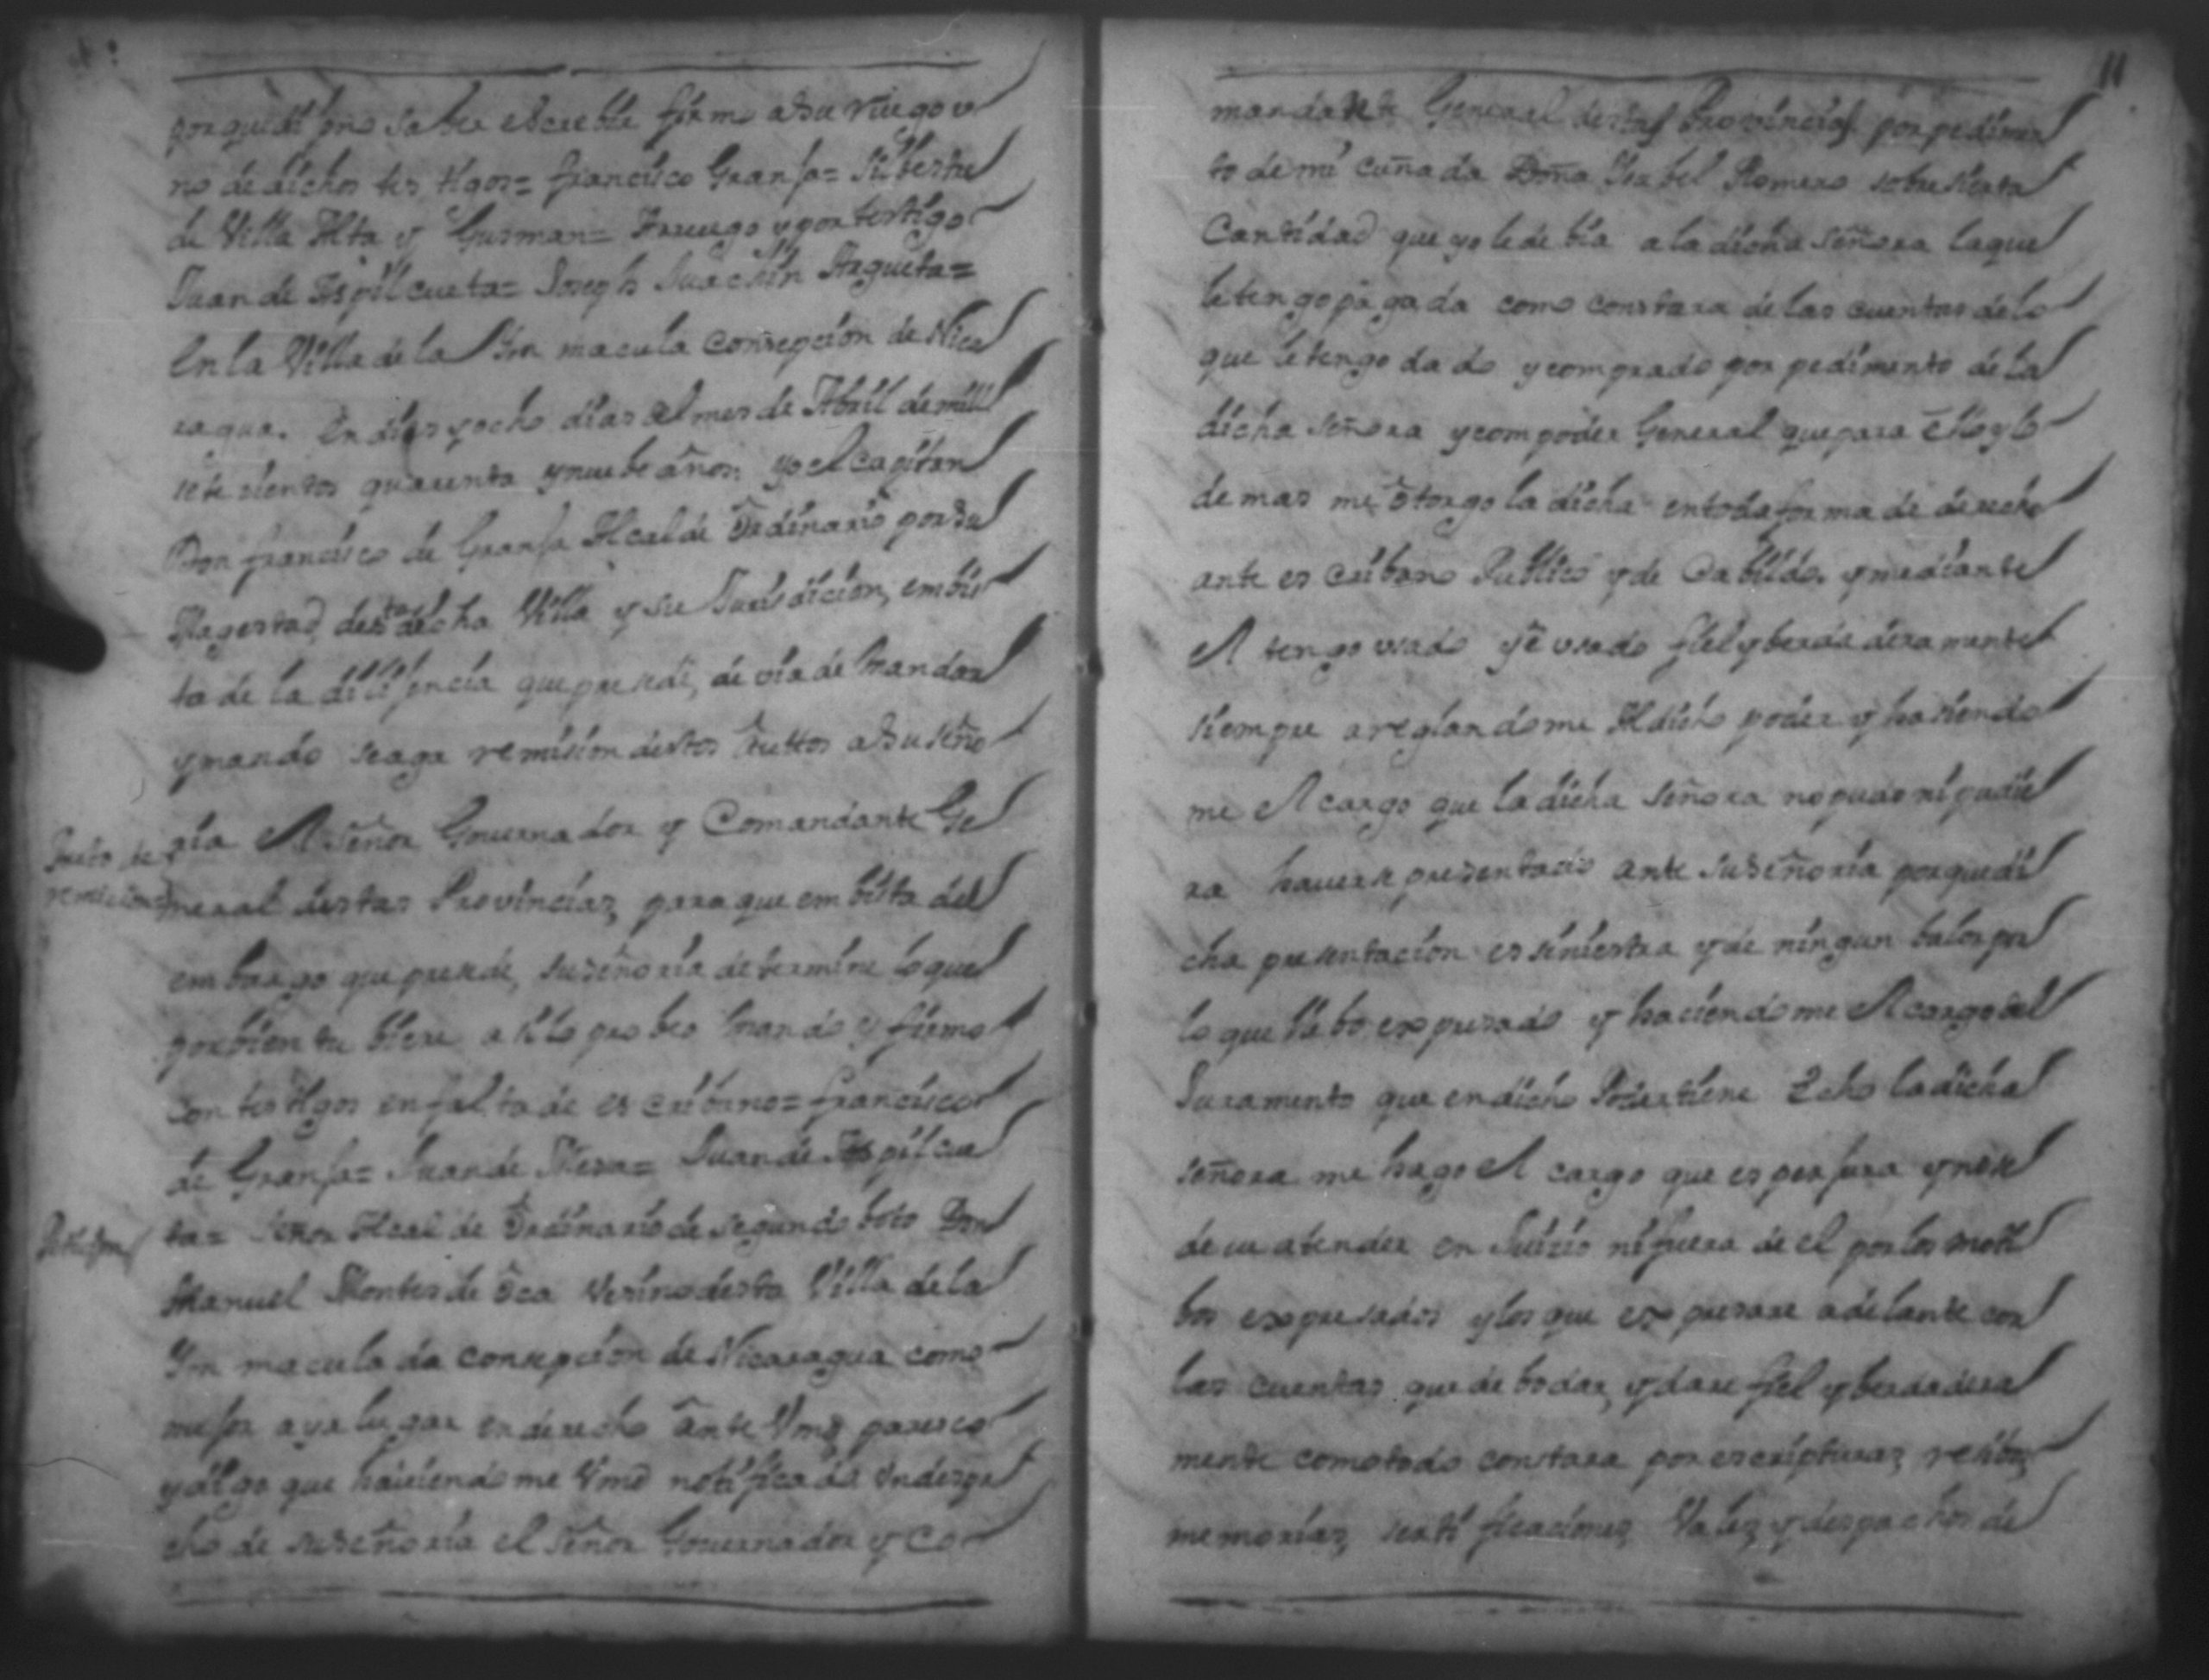 porque dijo no saber escrebir firmo a su ruego u
no de dichos testigos = francisco Granja = Silbestre
de Villa Alta y Gusman = Aruego y por testigo
Juan de Aspilcueta = Joseph Juachin Argueta =
En la Villa de la Inmacula Consepcion de Nica
ragua. En dies y ocho dias del mes de Abril de mill
setesientos quarenta y nuebe años. yo el Capitan
Don francisco de Granja Alcalde Ordinario por su
Magestad desta dicha Villa y su Jurisdicion, embis
ta de la dilijencia que presede, devia de mandar
y mando seaga remision destos Auttos a su seño
Auto de
remision
ria El señor Gouernador y Comandante Ge
neral destas Provincias, para que em bista del
embargo que presede, su señoria determine lo que
por bien tubiere asi lo probeo mando y firmo
con testigos en falta de escribano = francisco
de Granja = Juan de Mesa = Juan de Aspilcue
Petision
ta = señor Alcalde Ordinario de segundo boto Don
Manuel Montes de Oca Vesino desta Villa de la
Inmaculada consepcion de Nicaragua como
mejor aya lugar en derecho ante Vmd paresco
y digo que haviendome Vmd notificado Un despa
cho de su señoria el señor Gouernador y Co
11
mandante General destas Provincias por pedimen
to de mi cuñada Doña Isabel Romero sobre sierta
Cantidad que yo le debia a la dicha señora la que
le tengo pagada como constara de las cuentas de lo
que le tengo dado y comprado por pedimento de la
dicha señora y com poder General que para ello y lo
demas me otorgo la dicha en toda forma de derecho
ante escribano Publico y de Cabildo, y mediante
El tengo usado y e usado fiel y berdaderamente
siempre areglandome Al dicho poder y hasiendo
me El cargo que la dicha señora no pudo ni pudie
ra hauerse presentado ante su señoria porque di
cha presentacion es siniestra y de ningun balor por
lo que llebo expresado y haciendome El cargo del
Juramento que en dicho Poder tiene Echo la dicha
señora me hago El cargo que es perjura y no se
deue atender en Juicio ni fuera de el por los moti
bos expresados y los que expresare adelante con
las cuentas que debo dar, y dare fiel y berdadera
mente como todo constara por escripturas, resibos,
memorias, sertificaciones, Vales, y despachos de